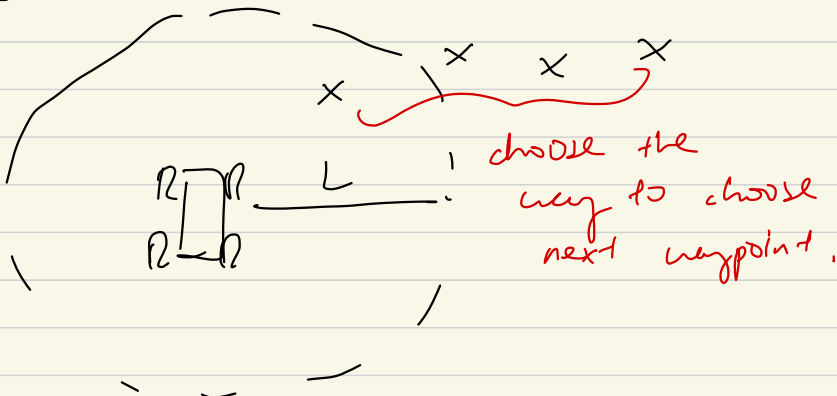 x x x
x
choose the
L
way to choose
next waypoint.